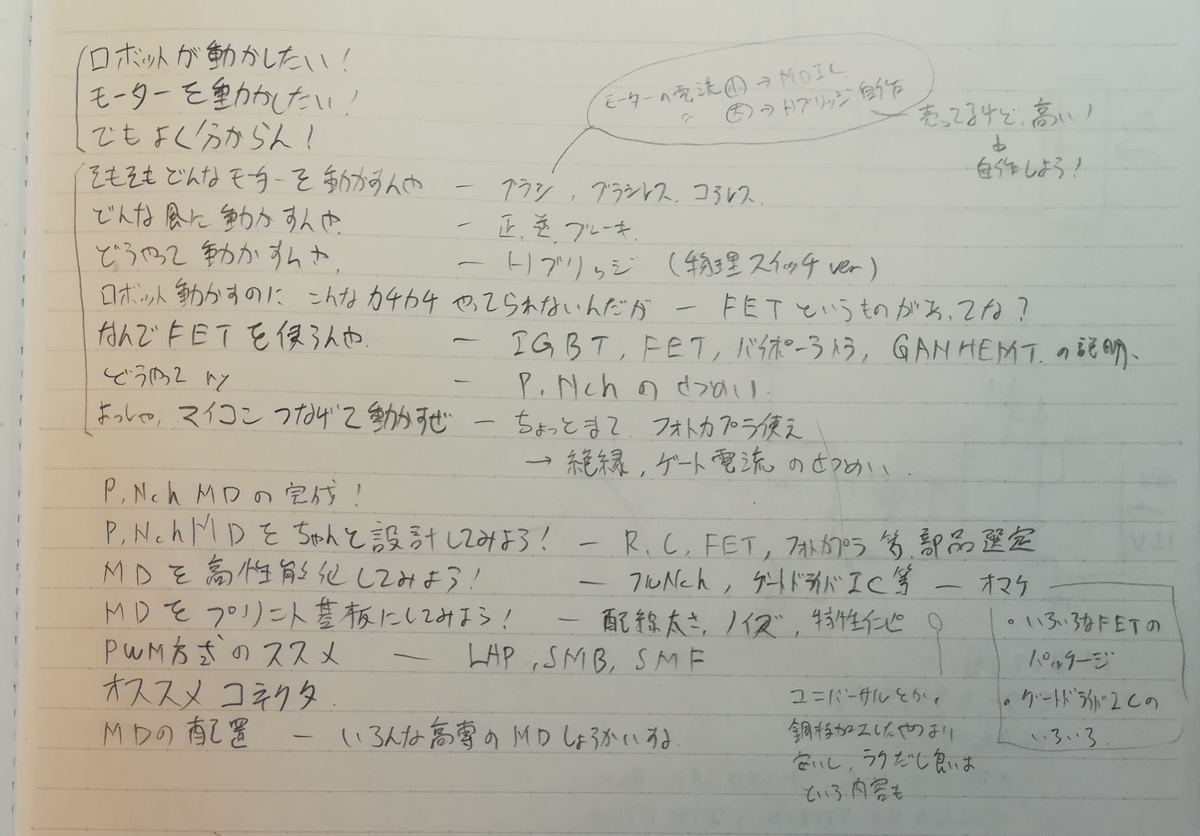 ロボットが動かしたい!
モーターを動かしたい!
でもよく分からん!
モーターの電流 小 → MDIC
〃 大 → Hブリッジ自作
売ってるけど、高い!
↓
自作しよう!
そもそもどんなモーターを動かすんや ― ブラシ, ブラシレス, コアレス
どんな風に動かすんや ― 正, 逆, ブレーキ
どうやって動かすんや ― Hブリッジ (物理スイッチver)
ロボット動かすのに こんなカチカチ やってられないんだが ― FETというものがあってな?
なんでFETを使うんや ― IGBT, FET, バイポーラトラ, GANHEMTの説明
どうやって ry ― P, Nch のせつめい
よっしゃ, マイコンつなげて動かすぜ ― ちょっとまて フォトカプラ使え
→ 絶縁, ゲート電流 のせつめい
P, Nch MD の完成!
P, Nch MD をちゃんと設計してみよう! ― R, C, FET, フォトカプラ 等 部品選定
MDを高性能化してみよう! ― フルNch, ゲートドライバIC等 ― オマケ
MDをプリント基板にしてみよう! ― 配線太さ, ノイズ, 特性インピ
PWM方式のススメ ― LAP, SMB, SMF
オススメコネクタ
MDの配置 ― いろんな高専のMDしょうかいする
・いろいろなFETの
パッケージ
・ゲートドライバICの
いろいろ
ユニバーサルとか,
銅板加工したやつより
安いし, ラクだし良いよ
という内容も